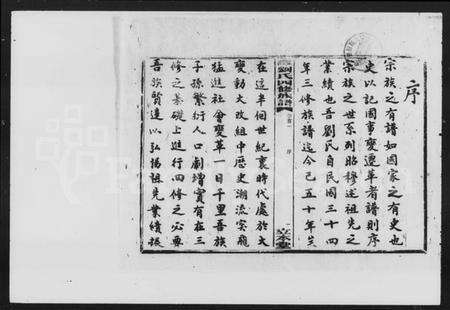 序
宗族之有譜如國家之有史也
史以記國事變遷革者譜則序
宗族之世系列昭穆述祖先之
業績也吾劉氏自民國三十四
年三修族譜迄今已五十年矣
劉氏四修族譜
卷首
序
在這半個世紀裏時代處於大
變動大改組中歷史潮流突飛
猛進社會變革一日千里吾族
子孫繁衍人口劇增實有在三
修之基礎上進行四修之必要
吾族賢達以弘揚祖先業績振